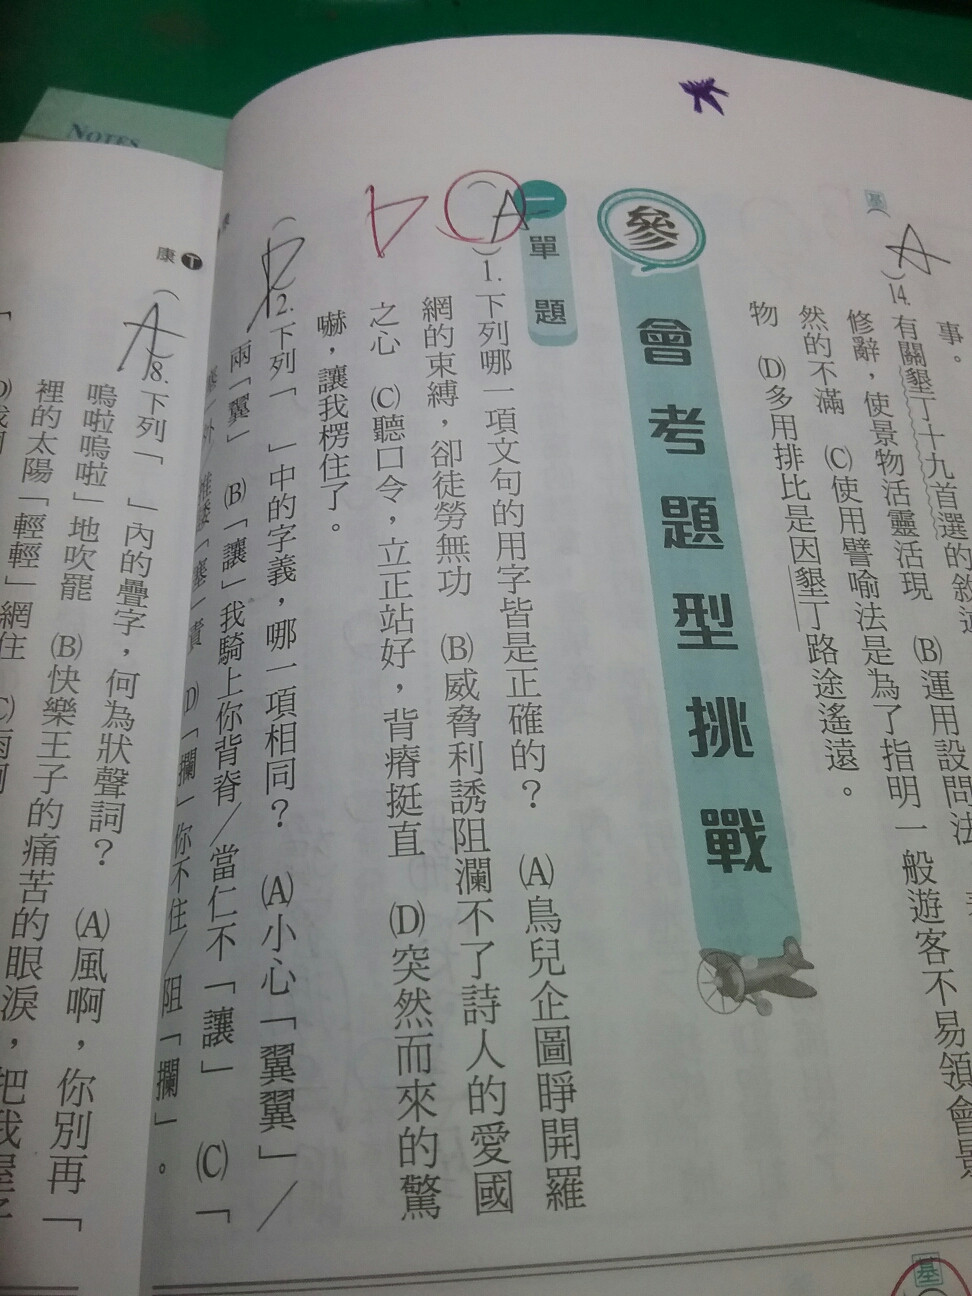 事。
基
(A)14.有關墾丁十九首選的敘述
修辭，使景物活靈活現　(B)運用設問法
然的不滿　(C)使用譬喻法是為了指明一般遊客不易領會景
物　(D)多用排比是因墾丁路途遙遠。
參
會考題型挑戰
一
單題
(A)1.下列哪一項文句的用字皆是正確的？　(A)鳥兒企圖睜開羅
網的束縛，卻徒勞無功　(B)威脅利誘阻瀾不了詩人的愛國
之心　(C)聽口令，立正站好，背瘠挺直　(D)突然而來的驚
嚇，讓我楞住了。
D
(D)2.下列「　」中的字義，哪一項相同？　(A)小心「翼翼」／
兩「翼」　(B)「讓」我騎上你背脊／當仁不「讓」　(C)「
塞」外／推諉「塞」責　(D)「攔」你不住／阻「攔」。
NOTES
康
(A)8.下列「　」內的疊字，何為狀聲詞？　(A)風啊，你別再「
嗚啦嗚啦」地吹罷　(B)快樂王子的痛苦的眼淚，把我
裡的太陽「輕輕」網住
基